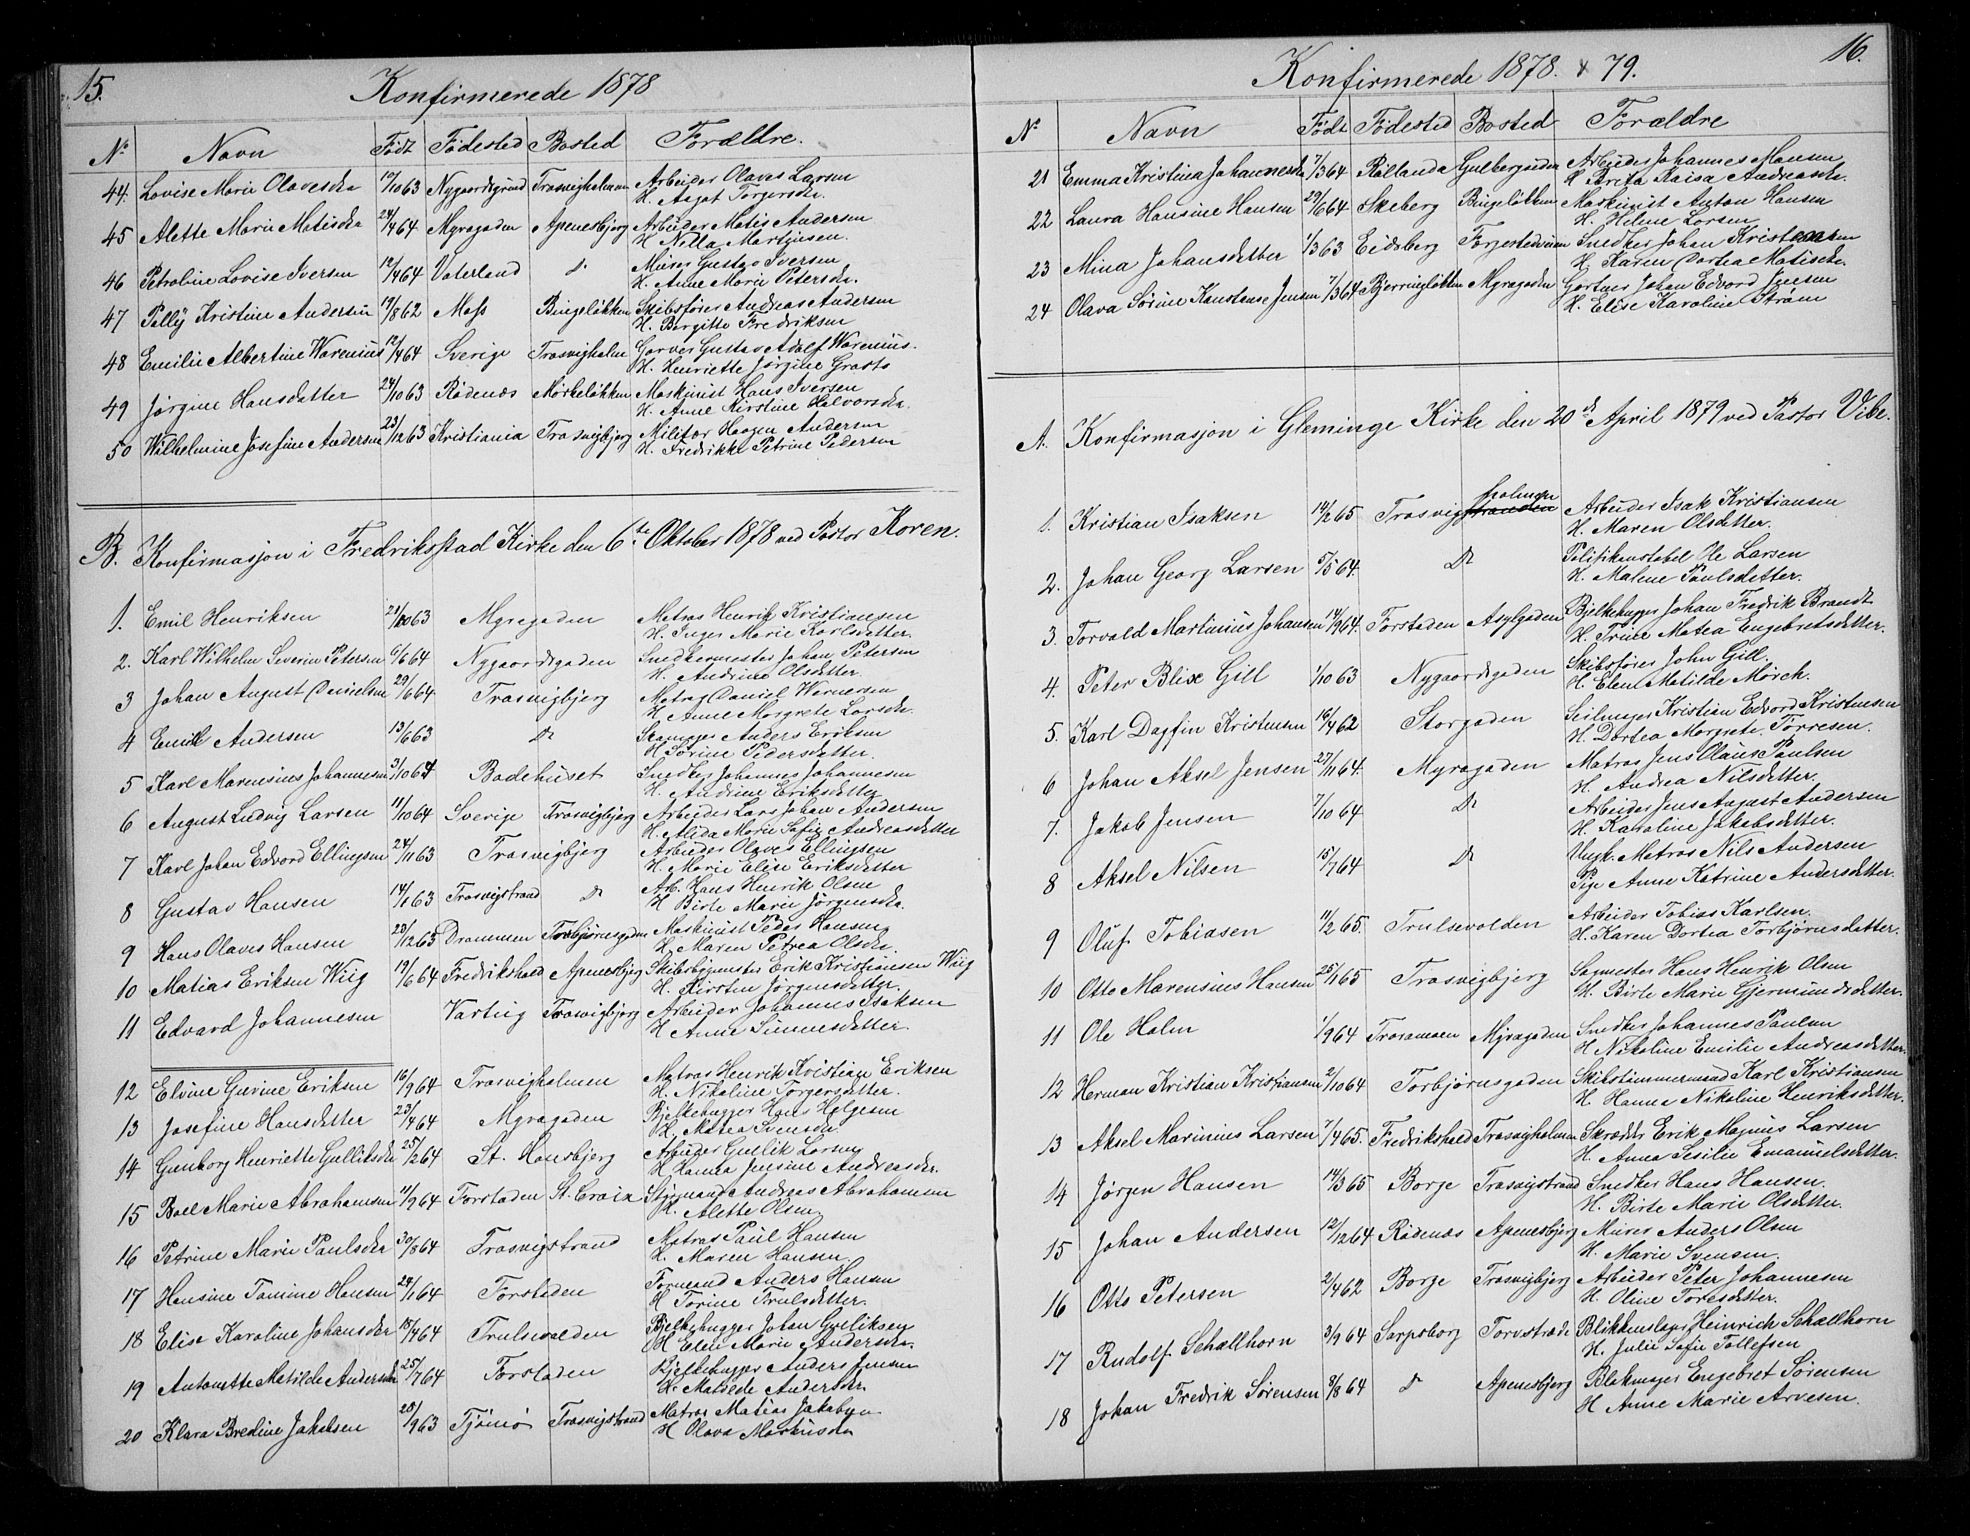 15.
Konfirmerede 1878
No Navn Födt Födested Bosted Forældre.
44. Lovise Marie Olavesdtr 12/10 63 Nygaardsgrund Trosvigholmen Arbeider Olaves Larsen
H. Aagot Torgersdtr.
45 Alette Marie Matisdtr 24/4 64 Myragaden Apenesbjerg Arbeider Matis Andersen
H. Nilla Martinsen.
46 Petroline Lovise Iversen 12/4 64 Vaterland do Murer Gustav Iversen
H. Anne Marie Petersdtr.
47 Polly Kristine Andersen 19/8 62 Moss Bingeløkken Skibsfører Andreas Andersen
H. Birgitte Fredriksen
48 Emilie Albertine Warenius 12/4 64 Sverige Trosvigholm Garver Gustav Adolf Warenius.
H. Henriette Jørgine
49 Jørgine Hansdatter 24/10 63 Rødenæs Mørkeløkken Maskinist Hans Iversen
H. Anne Kirstine Halvorsdtr.
50 Wilhelmine Josefine Andersen 23/12 63 Kristiania Trosvigbjerg Militær Haagen Andersen
H. Fredrikke Petrine Pedersen
B. Konfirmasjon i Fredriksstad Kirke den 6te Oktober 1878 ved Pastor Koren.
1. Emil Henriksen 21/10 63 Myragaden Matros Henrik Kristiansen
H. Inger Marie Karlsdetter.
2. Karl Wilhelm Severin Petersen 6/6 64 Nygaardsgaden Snedkermester Johan Petersen
H. Andrine Olsdetter.
3 Johan August Danielsen 29/6 64 Trosvigbjerg Matros Daniel Wernersen
H. Anne Margrete Larsdtr.
4 Emil Andersen 13/6 63 do Anders Eriksen
H. Sørine Pedersdetter.
5 Karl Marensius Johannesen 3/10 64 Badehuset Snedker Johannes Johannesen
H. Andrine Eriksdetter
6 August Ludvig Larsen 11/10 64 Sverige Trosvigbjerg Arbeider Lars Johan Andersen
H. Alida Marie Sofie Andreasdetter
7 Karl Johan Edvard Ellingsen 24/11 63 Trosvigbjerg Arbeider Olaves Ellingsen
H. Marie Elise Eriksdetter
8 Gustav Hansen 14/1 63 Trosvigstrand do Arb. Hans Henrik Olsen
H Birte Marie Jörgensdtr.
9 Hans Olaves Hansen 23/12 63 Drammen Torbjørnsgaden Maskinist Peder Hansen
H. Maren Petrea Olsdtr.
10 Matias Eriksen Wiig 19/6 64 Fredrikshald Apenesbjerg Skibsbygmester Erik Kristiansen Wiig
H. Kirsten Jörgensdetter.
11 Edvard Johannesen Varteig Trosvigbjerg Arbeider Johannes Isaksen
H Anne Simensdetter.
12 Elvine Guvine Eriksen 16/9 64 Trosvigholmen Matros Henrik Kristian Eriksen
H. Nikoline Torgersdetter.
13 Josefine Hansdetter 23/4 64 Myragaden Bjelkehugger Hans Helgesen
H. Matea Svensdtr
14 Gunborg Henriette Gulliksdtr 25/2 64 St. Hansbjerg Arbeider Gullik Larsen
H Hanna Jensine Andreasdtr.
15 Boel Marie Abrahamsen 11/9 64 Forstaden St. Croix Styrmand Andreas Abrahamsen
H. Alette Olsen
16 Petrine Marie Paulsdtr 30/8 64 Trosvigstrand Matros Paul Hansen
H. Maren Hansen
17 Hansine Tomine Hansen 24/1 64 Forstaden Formand Anders Hansen
H Torine Trulsdetter.
18 Elise Karoline Johansdtr 18/4 64 Trulsevolden Bjelkehugger Johan Gulliksen
H. Elen Marie Andersdtr.
19 Antonette Matilde Andersdtr 25/7 64 Forstaden Bjelkehugger Anders Jensen
H. Matilde Andersdtr
20 Klara Bredine Jakobsen 28/9 63 Tjömö Trosvigstrand Matros Matias Jakobsen
H Olava Markusdtr
16.
Konfirmerede 1878. & 79.
No Navn Födt Födested Bosted Forældre
21 Emma Kristina Johannesdtr 7/3 64 Rollanda Gulbergsiden Arbeider Johannes Monsen
H Brita Kaisa Andreasdtr.
22 Laura Hansine Hansen 29/6 64 Skeberg Bingeløkken Maskinist Anton Hansen
H. Helene Larsen
23 Mina Johansdetter 1/3 63 Eidsberg Torjestedveien Snedker Johan Kristensen
H. Karen Dortea Matisdtr.
24 Olava Sørine Konstanse Jensen 7/3 64 Bjerringløkken Myragaden Gartner Johan Edvard Jensen
H. Elise Karoline Strøm
A. Konfirmasjon i Gleminge Kirke den 20de April 1879 ved Pastor Vibe.
1. Kristian Isaksen 14/2 65 Trosvigstranden holmen Arbeider Isak Kristiansen
H. Maren Olsdetter.
2. Johan Georg Larsen 5/5 64. do Politikonstabel Ole Larsen
H. Malene Paulsdetter.
3. Torvald Martinius Johansen 14/9 64. Forstaden Asylgaden Bjelkehugger Johan Fredrik Brandt
H. Trine Matea Engebretsdetter.
4. Peter Blix Gill 1/10 63 Nygaardsgaden Skibsfører John Gill.
H. Elen Matilde Mörch.
5. Karl Dagfin Kristensen 16/4 62 Storgaden Seilmager Kristian Edvard Kristensen
H. Dortea Margrete Torresen.
6 Johan Aksel Jensen 27/11 64. Myragaden Matros Jens Olaus Paulsen
H. Andrea Nilsdetter.
7. Jakob Jensen 7/10 64 do Arbeider Jens August Andersen
H. Karoline Jakobsdetter.
8 Aksel Nilsen 15/7 64 do Ungk. Matros Nils Andersen
Pige Anne Katrine Andersdetter.
9 Oluf Tobiasen 11/2 65. Trulsevolden Arbeider Tobias Karlsen.
H. Karen Dortea Torbjørnsdatter.
10 Otto Marensius Hansen 25/1 65 Trosvigbjerg Sagmester Hans Henrik Olsen
H. Birte Marie Gjermundsdetter.
11 Ole Holm 1/9 64 Trosamoen Myragaden Snedker Johannes Paulsen
H Nikoline Emilie Andreasdetter.
12 Herman Kristian Kristiansen 2/10 64 Torbjørnsgaden Skibstømmermand Karl Kristiansen
H. Hanna Nikoline Henriksdetter.
13 Aksel Marinius Larsen 7/4 65. Fredrikshald Trosvigholmen Skrædder Erik Magnus Larsen
H. Anna Sesilie Emanuelsdetter.
14 Jörgen Hansen 14/3 65 Borge Trosvigstrand Snedker Hans Hansen.
H. Birte Marie Olsdetter.
15 Johan Andersen 12/12 64 Rødenæs Apenesbjerg Murer Anders Olsen
H. Marie Svensen.
16 Otto Petersen 2/4 62 Borge Trosvigbjerg Arbeider Peter Johannesen
H. Oline Toresdetter.
17 Rudolf Schallhorn 3/9 64 Sarpsborg Torvstræde Blikkenslager Heinrich Schallhorn
H. Julie Sofie Tollefsen
18 Johan Fredrik Sörensen 8/8 64 do Apenesbjerg Blokmager Engebret Sörensen
H Anne Marie Arvesen.